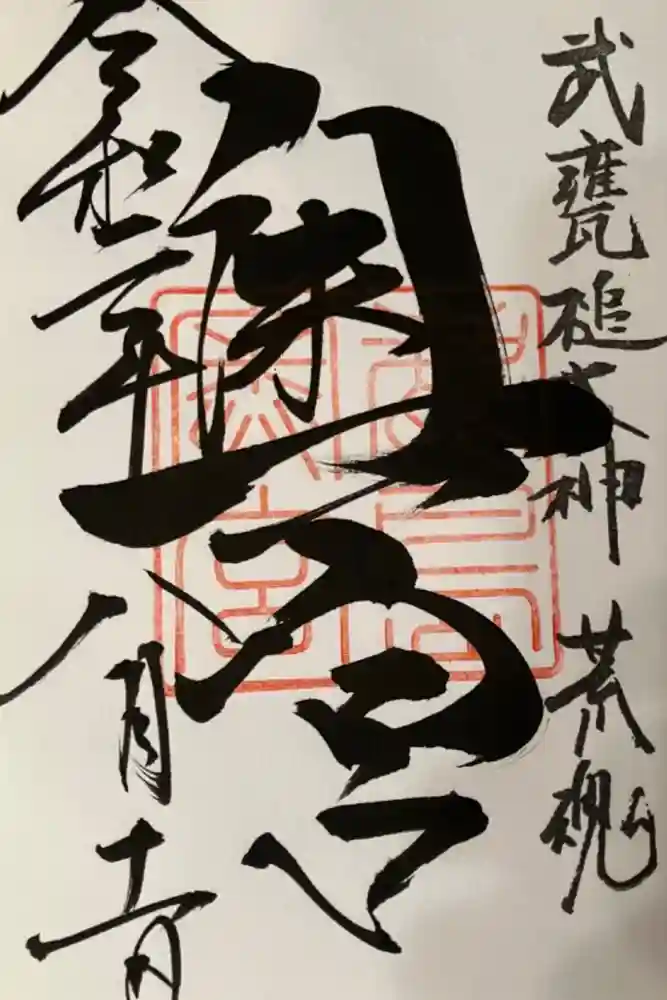 武甕槌大神 荒魂
奥宮
令和二年八月十一日